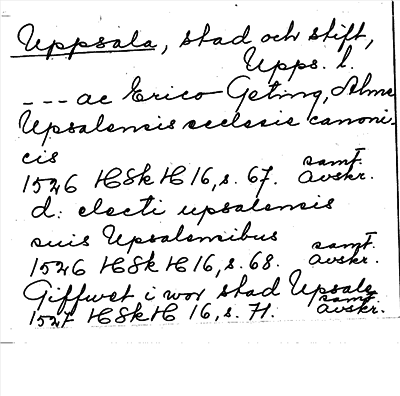 Uppsala, stad och stift,
Upps. l.
--- ac Erico Geting, Alme
Upsalensis ecclesie canoni-
cis
1526 HSkH 16, s. 67. samt. avskr.
d: electi upsalensis
suis Upsalensibus
1526 HSkH 16, s. 68. samt. avskr.
Giffwet i wor stad Upsale
1527 HSkH 16, s. 71. samt. avskr.